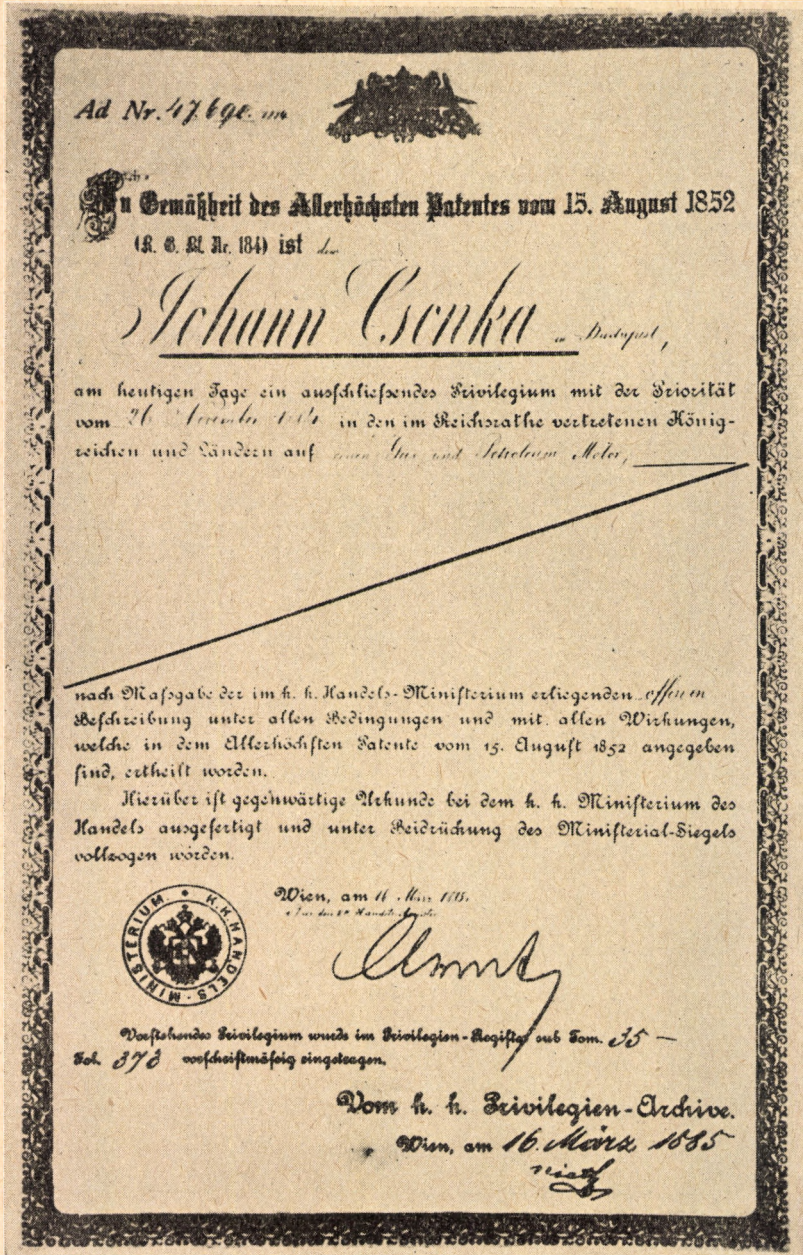 Ad Nr. 47.690.
In Gemäßheit des Allerhöchsten Patentes vom 15. August 1852
(R. G. Bl. Nr. 184) ist dem
Johann Csonka in Budapest,
am heutigen Tage ein ausschliefsendes Privilegium mit der Priorität
vom 26 November 1884 in den im Reichsrathe vertretenen König-
reichen und Ländern auf einen Gas und Petroleum Motor,
nach Mafsgabe der im k. k. Handels-Ministerium erliegenden offenen
Beschreibung unter allen Bedingungen und mit allen Wirkungen,
welche in dem Allerhöchsten Patente vom 15. August 1852 angegeben
sind, ertheilt worden.
Hierüber ist gegenwärtige Urkunde bei dem k. k. Ministerium des
Handels ausgefertigt und unter Beidrückung des Ministerial-Siegels
vollzogen worden.
K. K. HANDELS-MINISTERIUM
Wien, am 16 März 1885.
Vorstehendes Privilegium wurde im Privilegien-Register sub Tom. 35 –
Fol. 373 vorschriftmäfsig eingetragen.
Vom k. k. Privilegien-Archive.
Wien, am 16. März 1885